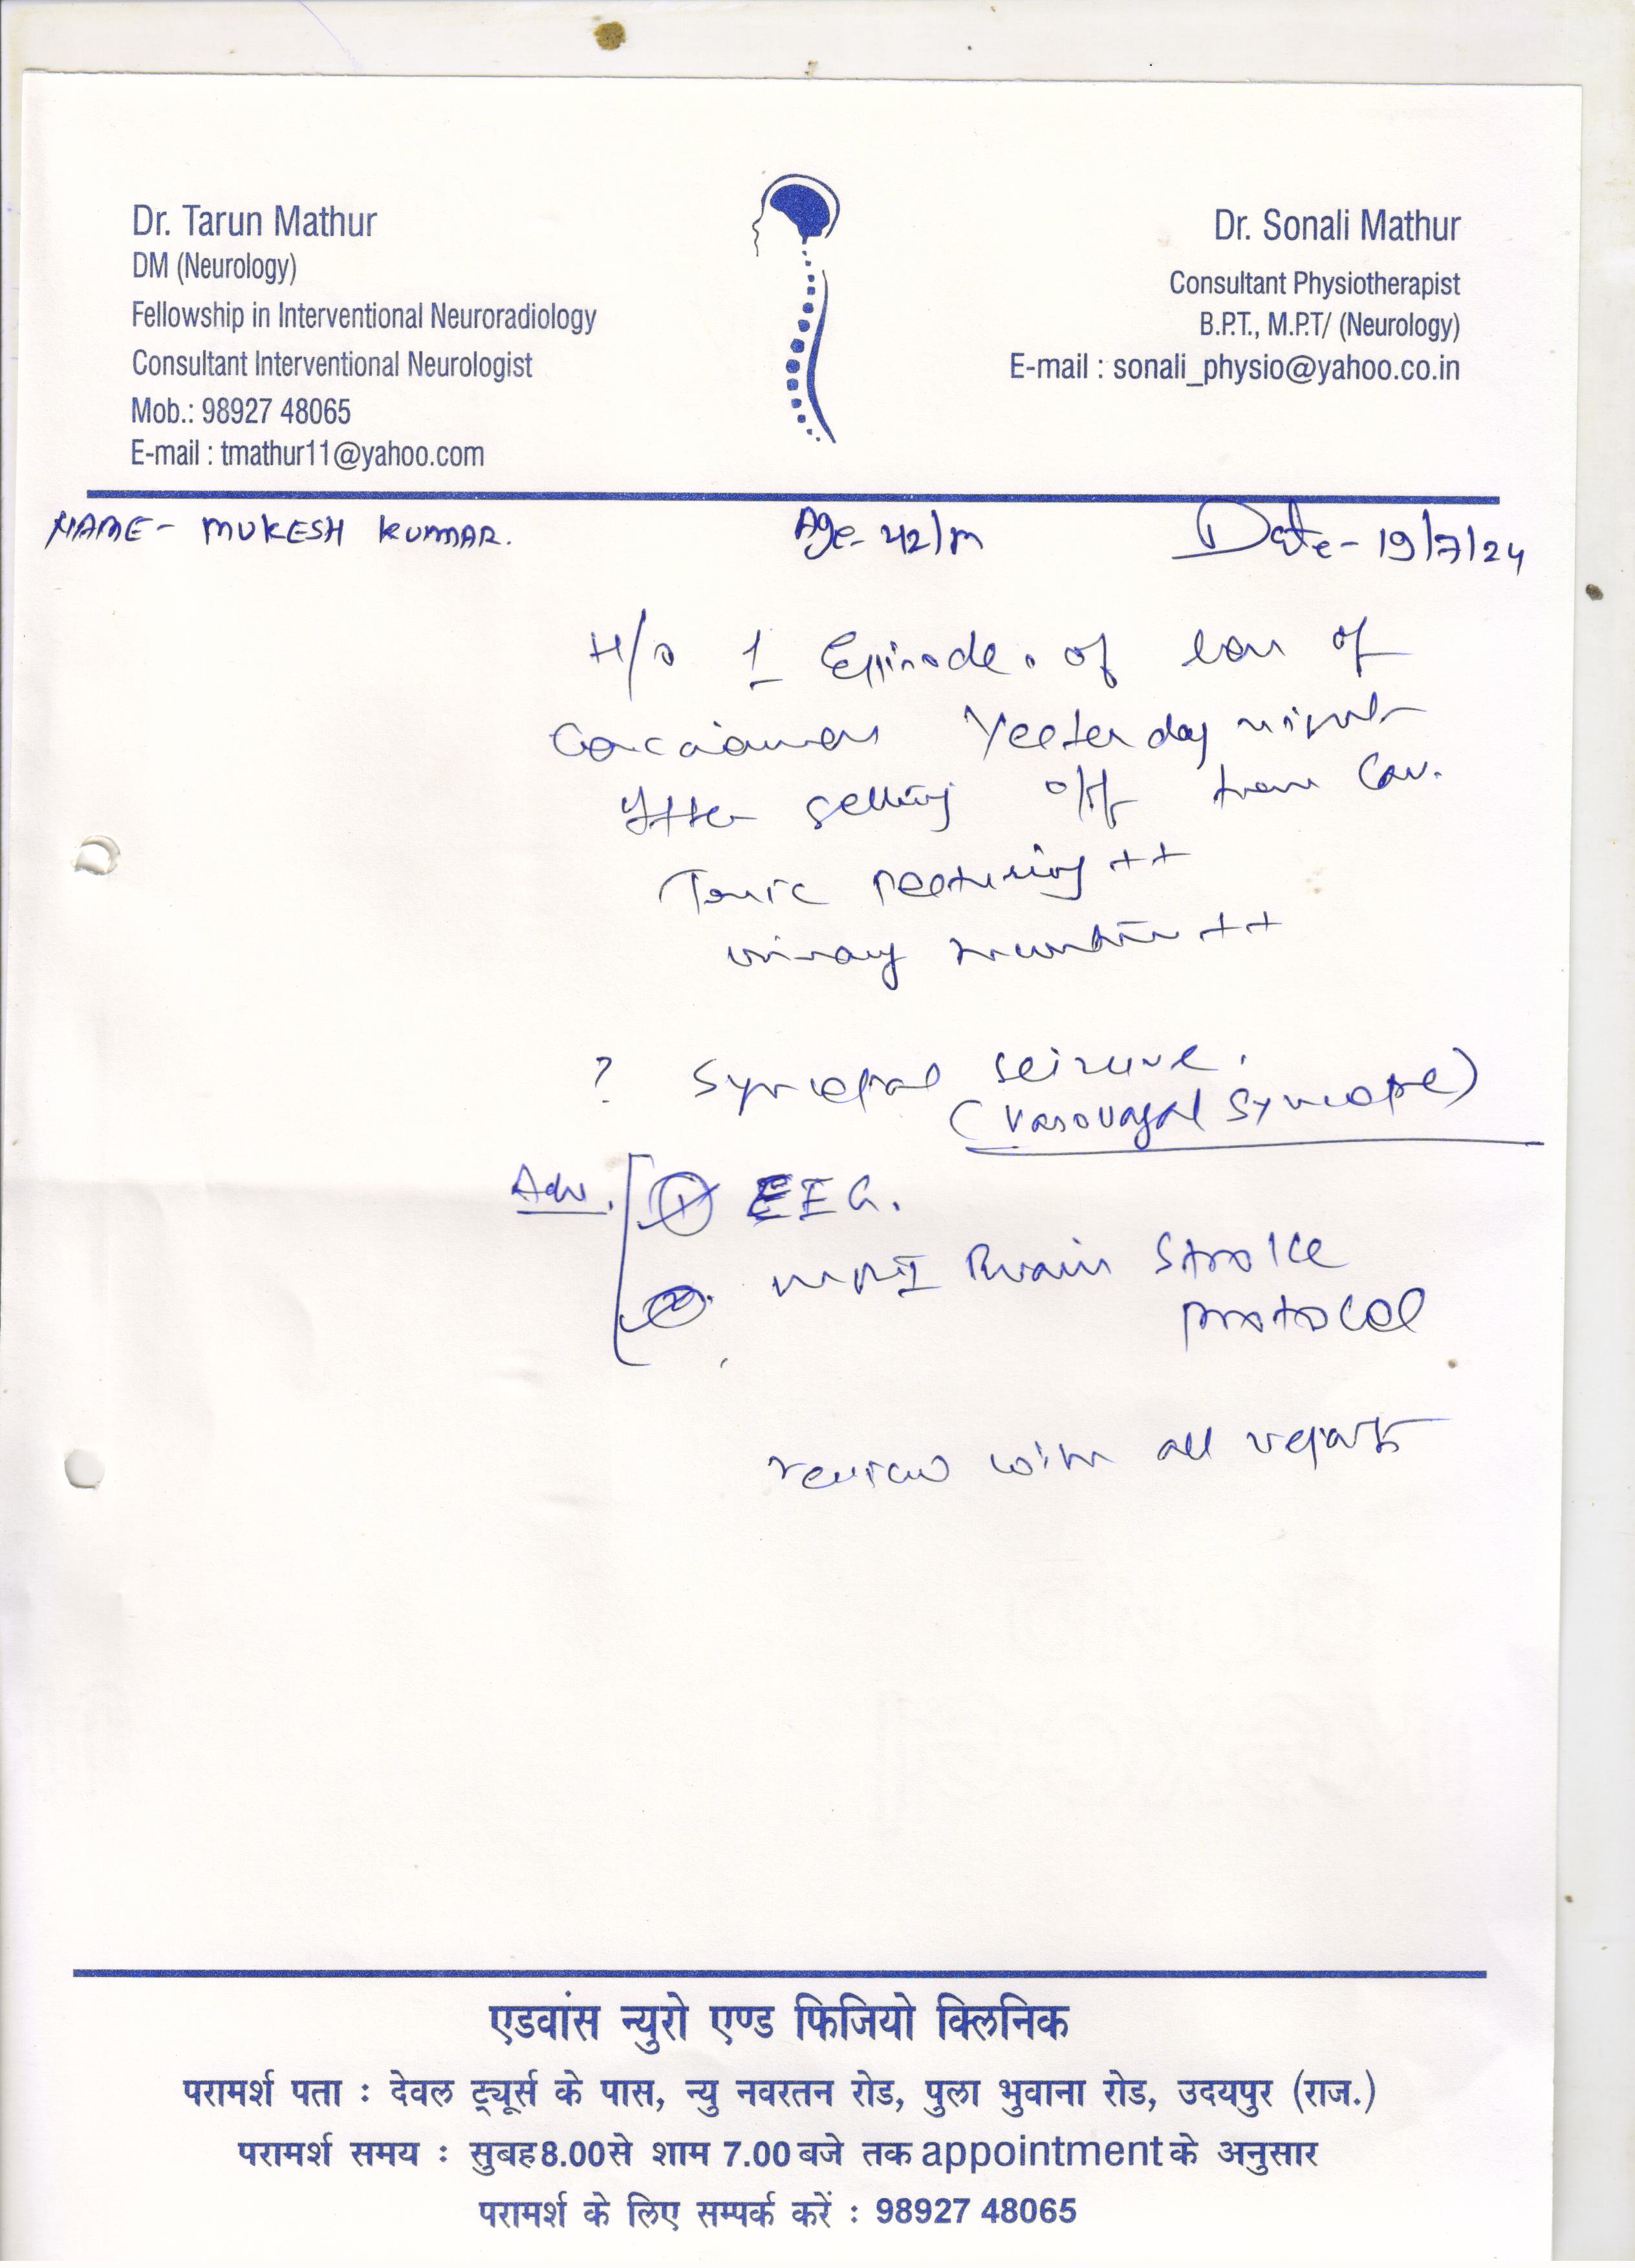 Dr. Tarun Mathur
DM (Neurology)
Fellowship in Interventional Neuroradiology
Consultant Interventional Neurologist
Mob.: 98927 48065
E-mail : tmathur11@yahoo.com
Dr. Sonali Mathur
Consultant Physiotherapist
B.P.T., M.P.T/ (Neurology)
E-mail : sonali_physio@yahoo.co.in
NAME- MUKESH KUMAR.
Age- 42/m
Date- 19/7/24
H/o 1 Episode of loss of
Consciousness Yesterday night
After getting off from Car.
Tonic posturing ++
urinary incontin ++
? Syncopal seizure.
(Vasovagal Syncope)
Adv. 1 EEG.
2. MRI Brain Stroke
protocol
review with all reports
एडवांस न्युरो एण्ड फिजियो क्लिनिक
परामर्श पता : देवल ट्यूर्स के पास, न्यु नवरतन रोड, पुला भुवाना रोड, उदयपुर (राज.)
परामर्श समय : सुबह 8.00 से शाम 7.00 बजे तक appointment के अनुसार
परामर्श के लिए सम्पर्क करें : 98927 48065